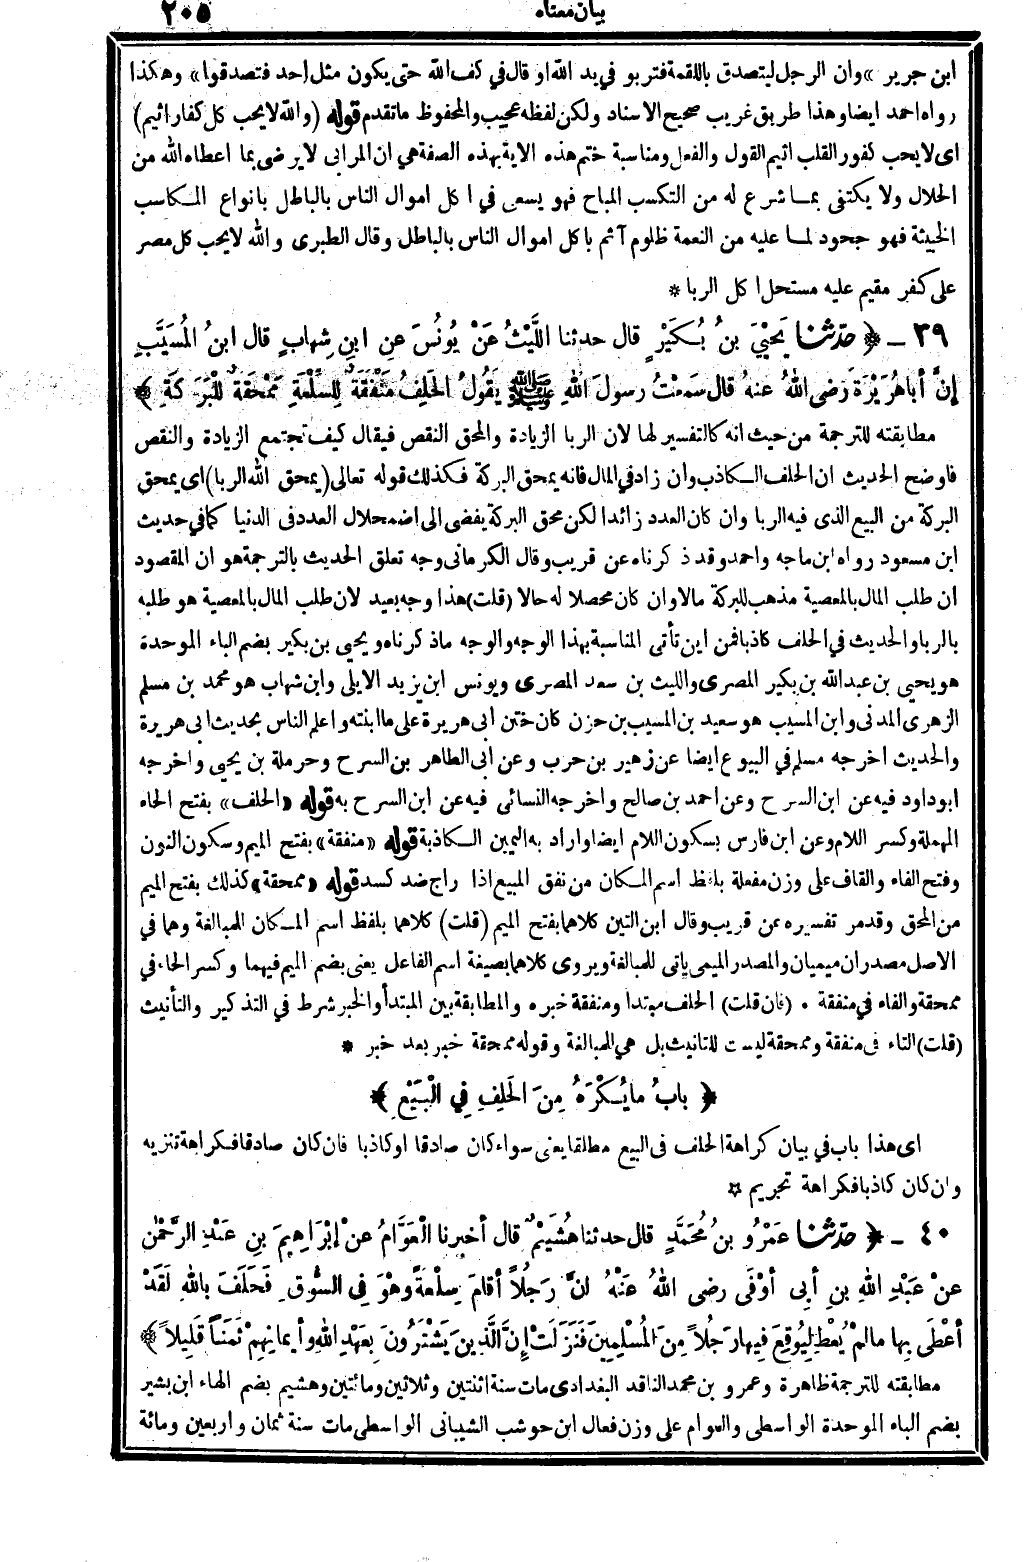 بيان معناه ٢٠٥
ابن جرير «وان الرجل ليتصدق باللقمة فتربو في يد الله او قال في كف الله حتى يكون مثل احد فتصدقوا» وهكذا
رواه احمد ايضا وهذا طريق غريب صحيح الاسناد ولكن لفظه عجيب والمحفوظ ما تقدم قوله (والله لا يحب كل كفار اثيم)
اى لا يحب كفور القلب اثيم القول والفعل ومناسبة ختم هذه الاية بهذه الصفة هي ان المرابى لا يرضى بما اعطاه الله من
الحلال ولا يكتفى بما شرع له من التكسب المباح فهو يسعى في اكل اموال الناس بالباطل بانواع المكاسب
الخبيثة فهو جحود لما عليه من النعمة ظلوم آثم باكل اموال الناس بالباطل وقال الطبرى والله لا يحب كل مصر
على كفر مقيم عليه مستحل اكل الربا *
٣٩ ـ ﴿ حدّثنا يَحْيَى بنُ بُكَيْرٍ قال حدثنا اللَّيْثُ عَنْ يُونُسَ عنِ ابنِ شِهابٍ قال ابنُ المُسَيَّبِ
إنَّ أباهُرَيْرَةَ رَضى اللهُ عنهُ قال سَمِعْتُ رسولَ اللهِ ﷺ يَقُولُ الحَلِفُ مَنْفَقَةٌ لِلسِّلْعَةِ مَمْحَقَةٌ لِلْبَرَكَةِ ﴾
مطابقته للترجمة من حيث انه كالتفسير لها لان الربا الزيادة والمحق النقص فيقال كيف تجتمع الزيادة والنقص
فاوضح الحديث ان الحلف الكاذب وان زاد في المال فانه يمحق البركة فكذلك قوله تعالى (يمحق الله الربا) اى يمحق
البركة من البيع الذى فيه الربا وان كان العدد زائدا لكن محق البركة يفضى الى اضمحلال العدد فى الدنيا كما في حديث
ابن مسعود رواه ابن ماجه واحمد وقد ذكرناه عن قريب وقال الكرمانى وجه تعلق الحديث بالترجمة هو ان المقصود
ان طلب المال بالمعصية مذهب للبركة مالا وان كان محصلا له حالا (قلت) هذا وجه بعيد لان طلب المال بالمعصية هو طلبه
بالربا والحديث في الحلف كاذبا فمن اين تأتى المناسبة بهذا الوجه والوجه ماذكرناه ويحيى بن بكير بضم الباء الموحدة
هو يحيى بن عبدالله بن بكير المصرى والليث بن سعد المصرى ويونس ابن يزيد الايلى وابن شهاب هو محمد بن مسلم
الزهرى المدنى وابن المسيب هو سعيد بن المسيب بن حزن كان ختن ابى هريرة على ما ابنته واعلم الناس بحديث ابى هريرة
والحديث اخرجه مسلم في البيوع ايضا عن زهير بن حرب وعن ابى الطاهر بن السرح وحرملة بن يحيى واخرجه
ابو داود فيه عن ابن السرح وعن احمد بن صالح واخرجه النسائى فيه عن ابن السرح به قوله «الحلف» بفتح الحاء
المهملة وكسر اللام وعن ابن فارس بسكون اللام ايضا واراد به اليمين الكاذبة قوله «منفقة» بفتح الميم وسكون النون
وفتح الفاء والقاف على وزن مفعلة بلفظ اسم المكان من نفق المبيع اذا راج ضد كسد قوله «ممحقة» كذلك بفتح الميم
من المحق وقدمر تفسيره عن قريب وقال ابن التين كلاهما بفتح الميم (قلت) كلاهما بلفظ اسم المكان للمبالغة وهما في
الاصل مصدران ميميان والمصدر الميمى يأتى للمبالغة ويروى كلاهما بصيغة اسم الفاعل يعنى بضم الميم فيهما وكسر الحاء في
ممحقة والفاء في منفقة ٠ (فان قلت) الحلف مبتدا ومنفقة خبره والمطابقة بين المبتدأ والخبر شرط في التذكير والتأنيث
(قلت) التاء فى منفقة وممحقة ليست للتانيث بل هي للمبالغة وقوله ممحقة خبر بعد خبر *
﴿ بابُ ما يُكْرَهُ مِنَ الحَلِفِ فِي الْبَيْعِ ﴾
اى هذا باب في بيان كراهة الحلف فى البيع مطلقا يعنى سواء كان صادقا او كاذبا فان كان صادقا فكراهة تنزيه
وان كان كاذبا فكراهة تحريم *
٤٠ ـ ﴿ حدّثنا عَمْرُو بنُ مُحَمَّدٍ قال حدثنا هُشَيْمٌ قال أخبرنا الْعَوَّامُ عنْ إبْرَاهِيمَ بنِ عَبْدِ الرَّحْمٰنِ
عنْ عَبْدِ اللهِ بنِ أبِى أوْفَى رضى اللهُ عَنْهُ انَّ رَجُلاً أقامَ سِلْعَةً وهْوَ فِى السُّوقِ فَحَلَفَ بِاللهِ لَقَدْ
أعْطَى بِها مالمْ يُعْطَ لِيُوقِعَ فِيها رَجُلاً مِنَ المُسْلِمِينَ فَنَزَلَتْ إنَّ الَّذِينَ يَشْتَرُونَ بِعَهْدِ اللهِ وأيمانِهِمْ ثَمَناً قَلِيلاً ﴾
مطابقته للترجمة ظاهرة وعمرو بن محمد الناقد البغدادى مات سنة اثنتين وثلاثين ومائتين وهشيم بضم الهاء ابن بشير
بضم الباء الموحدة الواسطى والعوام على وزن فعال ابن حوشب الشيبانى الواسطى مات سنة ثمان واربعين ومائة